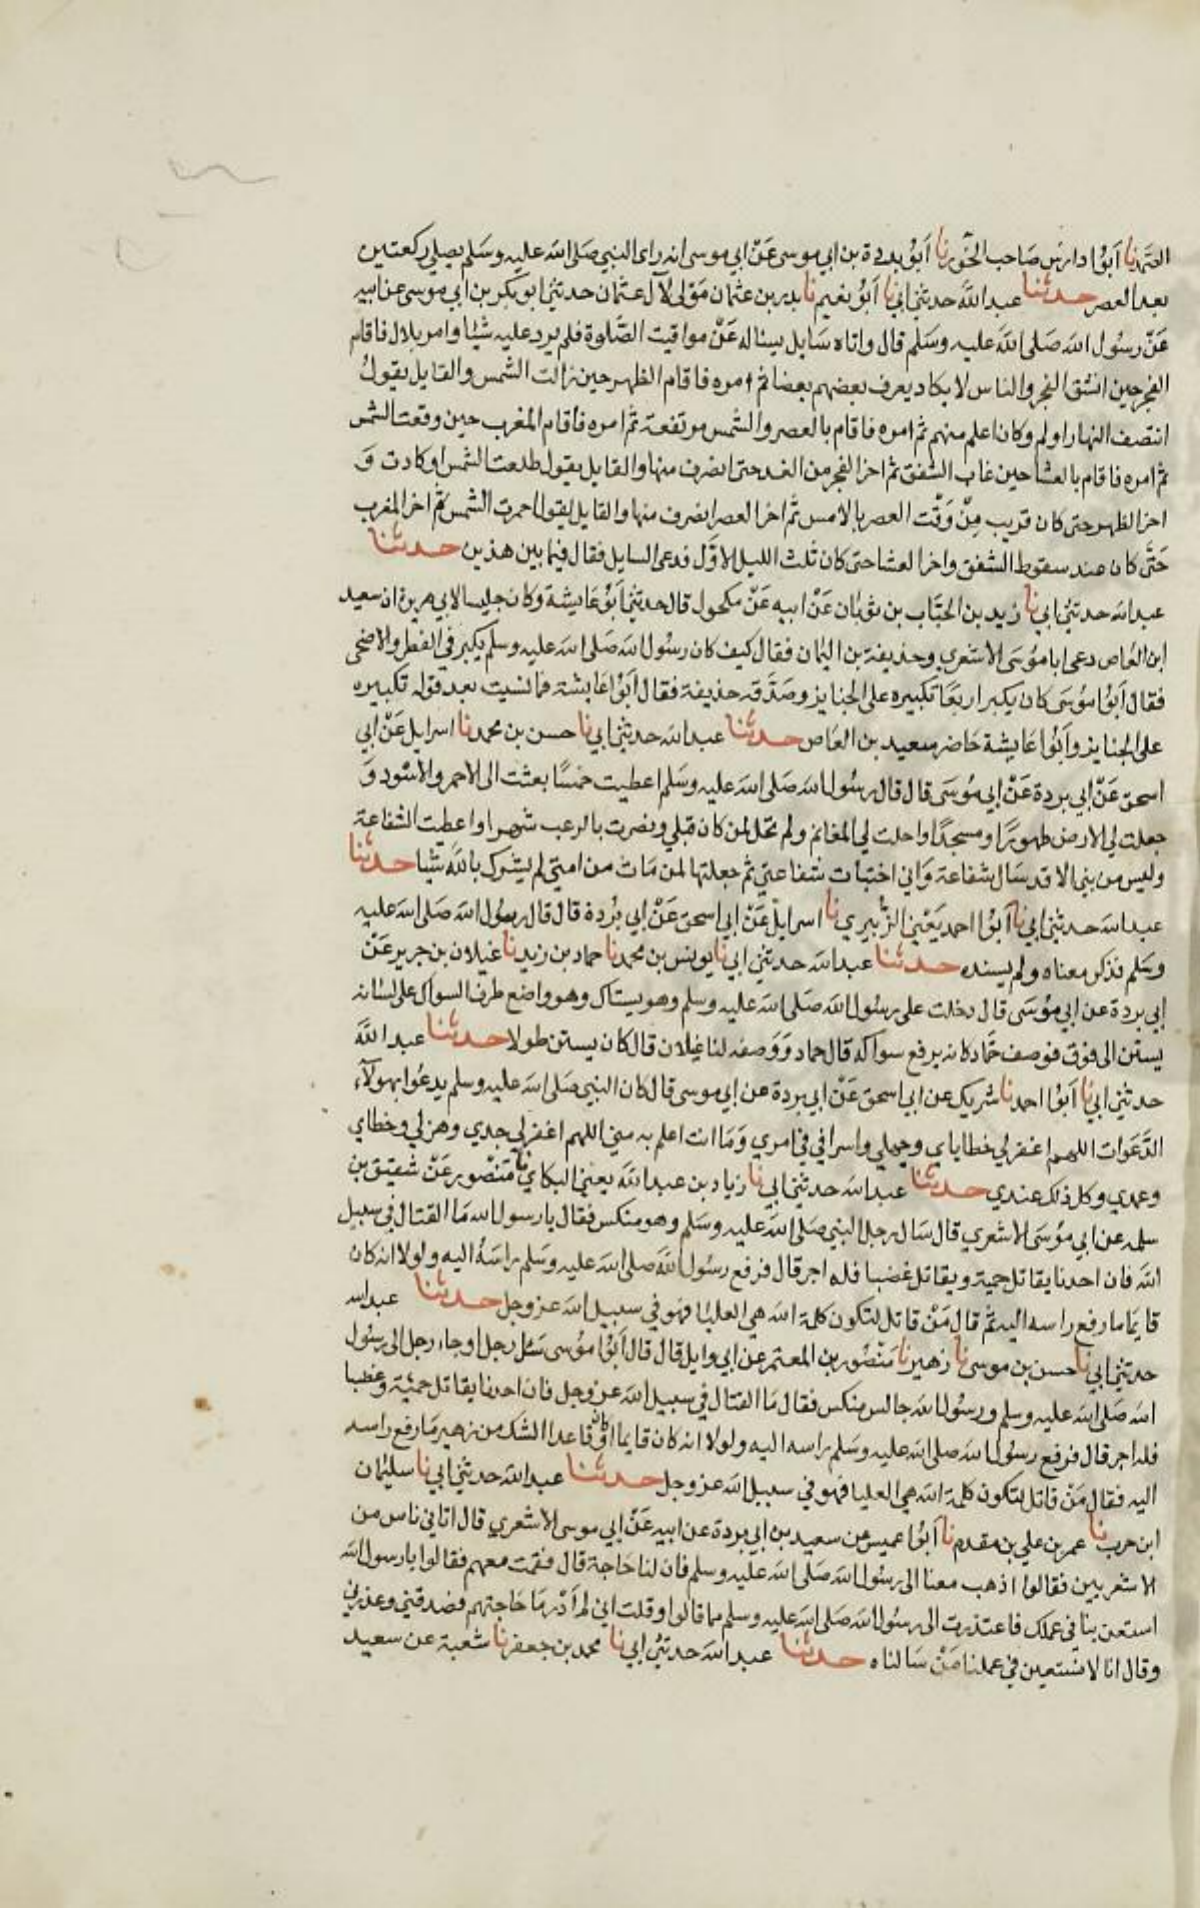 الصمد نا أبوا دارس صاحب الحور نا أبو بردة بن ابي موسى عن ابي موسى انه راى النبي صلى الله عليه وسلم يصلي ركعتين
بعد العصر حدثنا عبد الله حدثني ابي نا أبو نعيم نا بدر بن عثمان مولى لآل عثمان حدثني ابو بكر بن ابي موسى عن ابيه
عن رسول الله صلى الله عليه وسلم قال واتاه سايل يساله عن مواقيت الصلوة فلم يرد عليه شيئا وامر بلال فاقام
الفجر حين انشق الفجر والناس لا يكاد يعرف بعضهم بعضا ثم امره فاقام الظهر حين زالت الشمس والقايل يقول
انتصف النهار اولم وكان اعلم منهم ثم امره فاقام بالعصر والشمس مرتفعة ثم امره فاقام المغرب حين وقعت الشمس
ثم امره فاقام بالعشا حين غاب الشفق ثم اخر الفجر من الغد حتى انصرف منها والقايل يقول طلعت الشمس او كادت و
اخر الظهر حتى كان قريب من وقت العصر بالامس ثم اخر العصر انصرف منها والقايل يقول احمرت الشمس ثم اخر المغرب
حتى كان عند سقوط الشفق واخر العشا حتى كان ثلث الليل الاول فدعى السايل فقال فيما بين هذين حدثنا
عبد الله حدثني ابي نا زيد بن الحباب بن ثوبان عن ابيه عن مكحول قال حدثني أبو عايشة وكان جليسا لابي هريرة ان سعيد
ابن العاص دعى ابا موسى الاشعري وحذيفة بن اليمان فقال كيف كان رسول الله صلى الله عليه وسلم يكبر في الفطر والاضحى
فقال أبوا موسى كان يكبر اربعا تكبيره على الجنايز وصدقه حذيفة فقال أبوا عايشة فما نسيت بعد قوله تكبيره
على الجنايز وأبوا عايشة حاضر سعيد بن العاص حدثنا عبد الله حدثني ابي نا حسن بن محمد نا اسرايل عن ابي
اسحق عن ابي بردة عن ابي موسى قال قال رسول الله صلى الله عليه وسلم اعطيت خمسا بعثت الى الاحمر والاسود و
جعلت لي الارض طهورا ومسجدا واحلت لي المغانم ولم تحل لمن كان قبلي ونصرت بالرعب شهرا واعطيت الشفاعة
وليس من نبي الا قد سال شفاعة واني اختبات شفاعتي ثم جعلتها لمن مات من امتي لم يشرك بالله شيا حدثنا
عبد الله حدثني ابي نا أبوا احمد يعني الزبيري نا اسرايل عن ابي اسحق عن ابي بردة قال قال رسول الله صلى الله عليه
وسلم فذكر معناه ولم يسنده حدثنا عبد الله حدثني ابي نا يونس بن محمد نا حماد بن زيد نا غيلان بن جرير عن
ابي بردة عن ابي موسى قال دخلت على رسول الله صلى الله عليه وسلم وهو يستاك وهو واضع طرف السواك على لسانه
يستن الى فوق فوصف حماد كانه يرفع سواكه قال حماد ووصفه لنا غيلان قال كان يستن طولا حدثنا عبد الله
حدثني ابي نا أبوا احمد نا شريك عن ابي اسحق عن ابي بردة عن ابي موسى قال كان النبي صلى الله عليه وسلم يدعوا بهولاء
الدعوات اللهم اغفر لي خطاياي وجهلي واسرافي في امري وما انت اعلم به مني اللهم اغفر لي جدي وهزلي وخطاي
وعمدي وكل ذلك عندي حدثنا عبد الله حدثني ابي نا زياد بن عبد الله يعني البكاي نا منصور عن شقيق بن
سلمه عن ابي موسى الاشعري قال سال رجل النبي صلى الله عليه وسلم وهو منكس فقال يا رسول الله ما القتال في سبيل
الله فان احدنا يقاتل حمية ويقاتل غضبا فله اجر قال فرفع رسول الله صلى الله عليه وسلم راسه اليه ولولا انه كان
قايما ما رفع راسه اليه ثم قال من قاتل لتكون كلمة الله هي العليا فهو في سبيل الله عز وجل حدثنا عبد الله
حدثني ابي نا حسن بن موسى نا زهير نا منصور بن المعتمر عن ابي وايل قال قال أبوا موسى سئل رجل او جاء رجل الى رسول
الله صلى الله عليه وسلم ورسول الله جالس منكس فقال ما القتال في سبيل الله عز وجل فان احدنا يقاتل حمية وغضبا
فله اجر قال فرفع رسول الله صلى الله عليه وسلم راسه اليه ولولا انه كان قايما او كان قاعدا الشك من زهير ما رفع راسه
اليه فقال من قاتل لتكون كلمة الله هي العليا فهو في سبيل الله عز وجل حدثنا عبد الله حدثني ابي نا سليمان
ابن حرب نا عمر بن علي بن مقدم نا أبوا عميس عن سعيد بن ابي بردة عن ابيه عن ابي موسى الاشعري قال اتاني ناس من
الاشعريين فقالوا اذهب معنا الى رسول الله صلى الله عليه وسلم فان لنا حاجة قال فقمت معهم فقالوا يا رسول الله
استعن بنا في عملك فاعتذرت الى رسول الله صلى الله عليه وسلم مما قالوا وقلت اني لم أدر ما حاجتهم فصدقني وعذرني
وقال انا لا نستعين في عملنا من سالناه حدثنا عبد الله حدثني ابي نا محمد بن جعفر نا شعبة عن سعيد